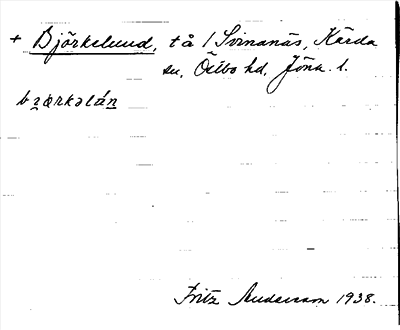 + Björkelund, tå / Svinanäs, Kärda
sn, Östbo hd, Jönk. l.
bzærkəlán
Fritz Anderson 1938.